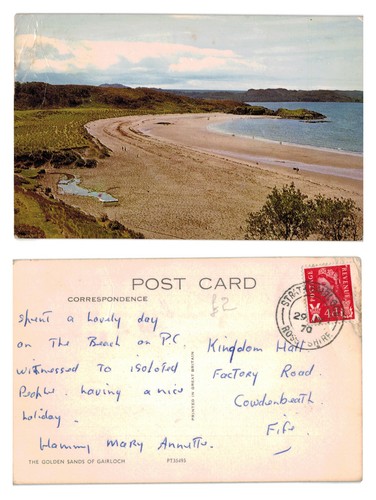 POST CARD
CORRESPONDENCE
£2
Spent a lovely day
on The Beach on P.C.
witnessed to isolated
People. having a nice
holiday.
Hammy Mary Annette.
PRINTED IN GREAT BRITAIN
Kingdom Hall
Factory Road.
Cowdenbeath
Fife.
POSTAGE
REVENUE
4d
29
70
ROSS-SHIRE
THE GOLDEN SANDS OF GAIRLOCH
PT36496